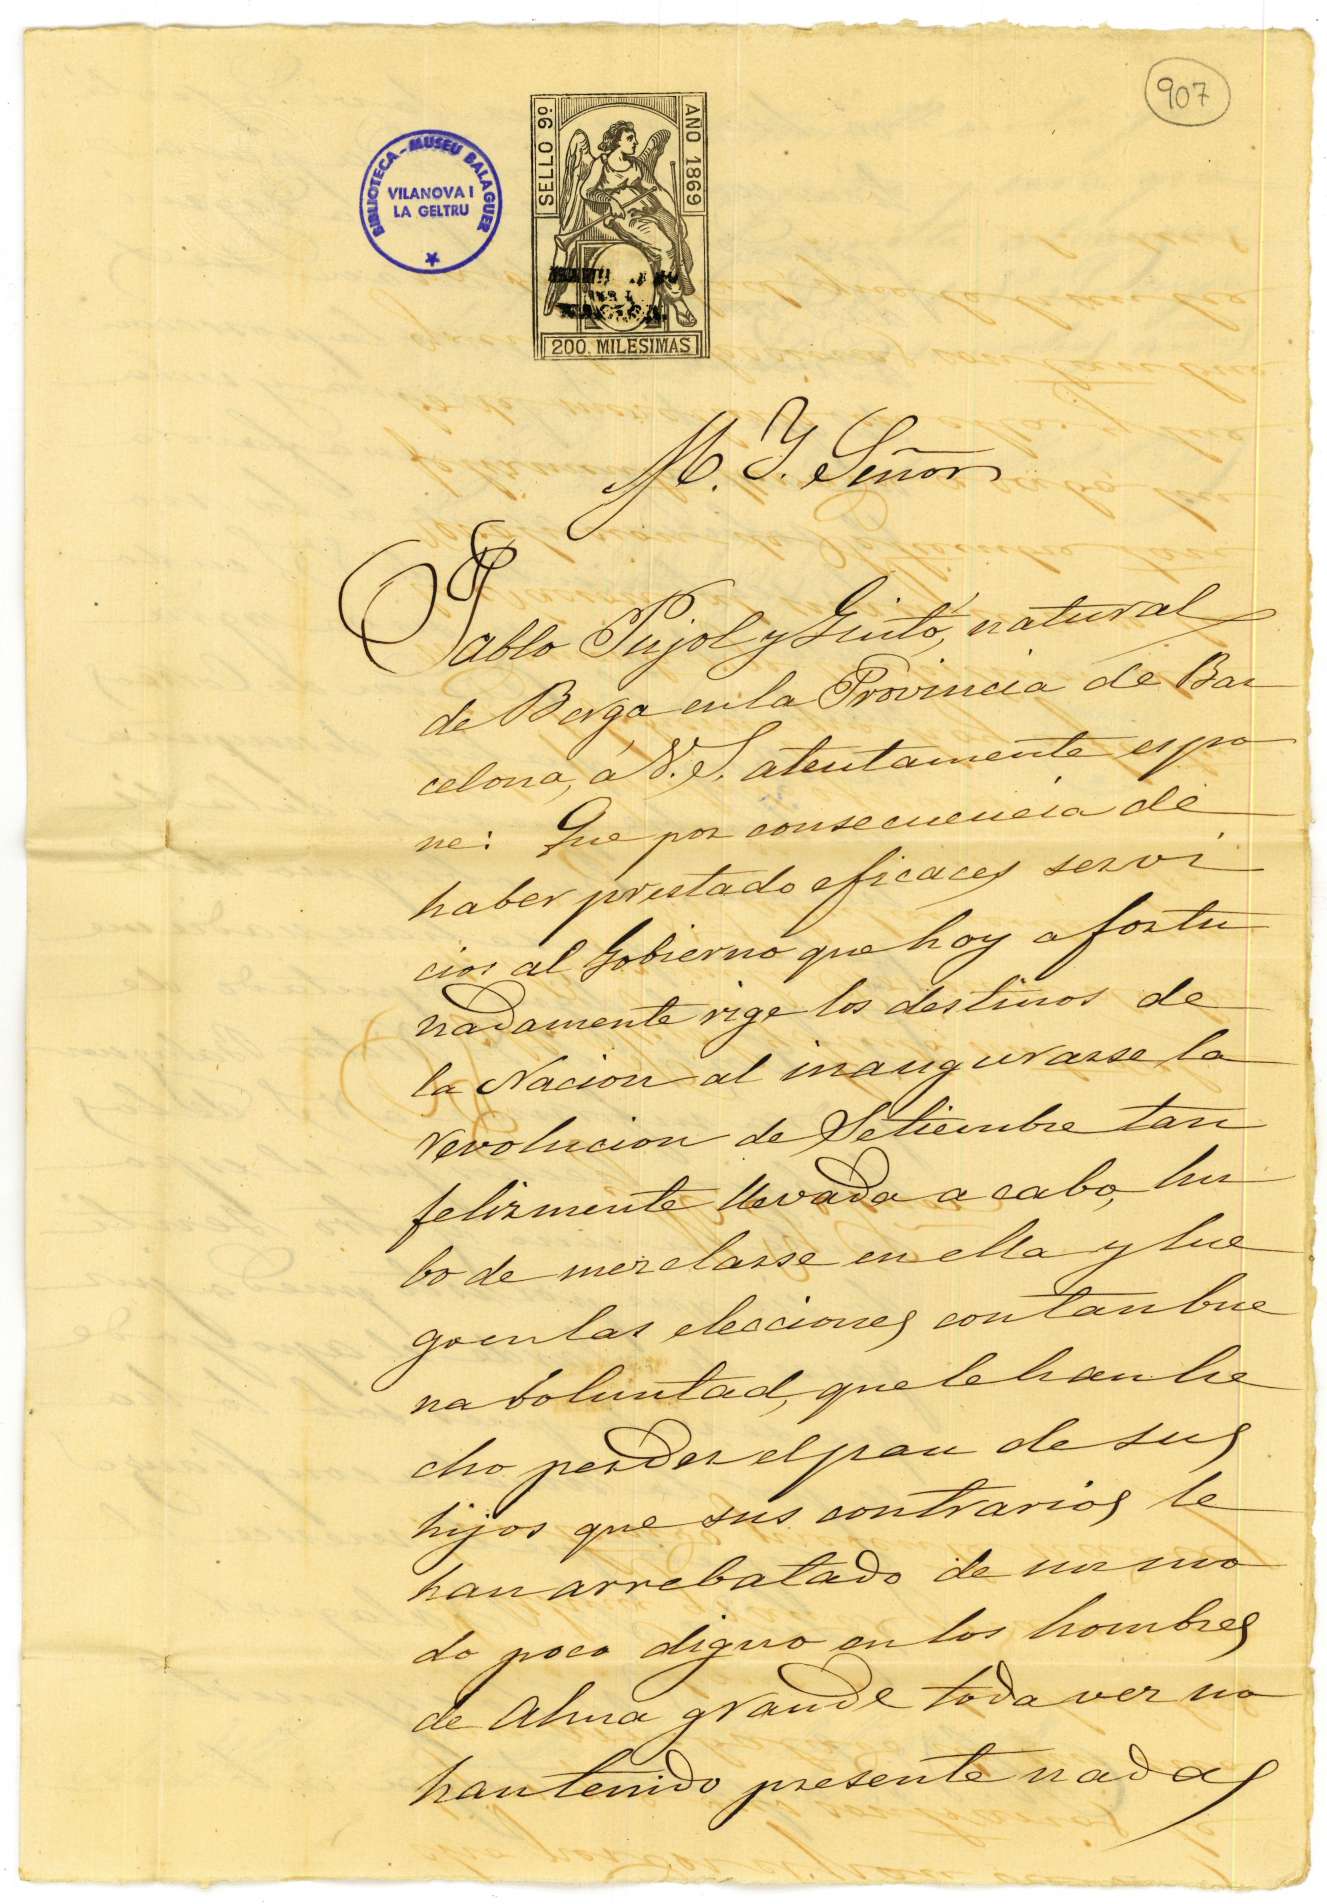 907
BIBLIOTECA - MUSEU BALAGUER
VILANOVA I
LA GELTRU
SELLO 9º
AÑO 1869
200 MILESIMAS
M. Y. Señor
Pablo Pujol y Guitó, natural
de Berga, en la Provincia de Bar
celona, á V. S. atentamente espo
ne: Que por consecuencia de
haber prestado eficaces servi
cios al Gobierno que hoy afortu
nadamente rige los destinos de
la Nacion al inaugurarse la
revolucion de Setiembre tan
felizmente llevada a cabo, hu
bo de mezclarse en ella y lue
go en las elecciones con tan bue
na boluntad, que le han he
cho perder el pan de sus
hijos que sus contrarios le
han arrebatado de un mo
do poco digno en los hombres
de Alma grande toda vez no
han tenido presente nadas